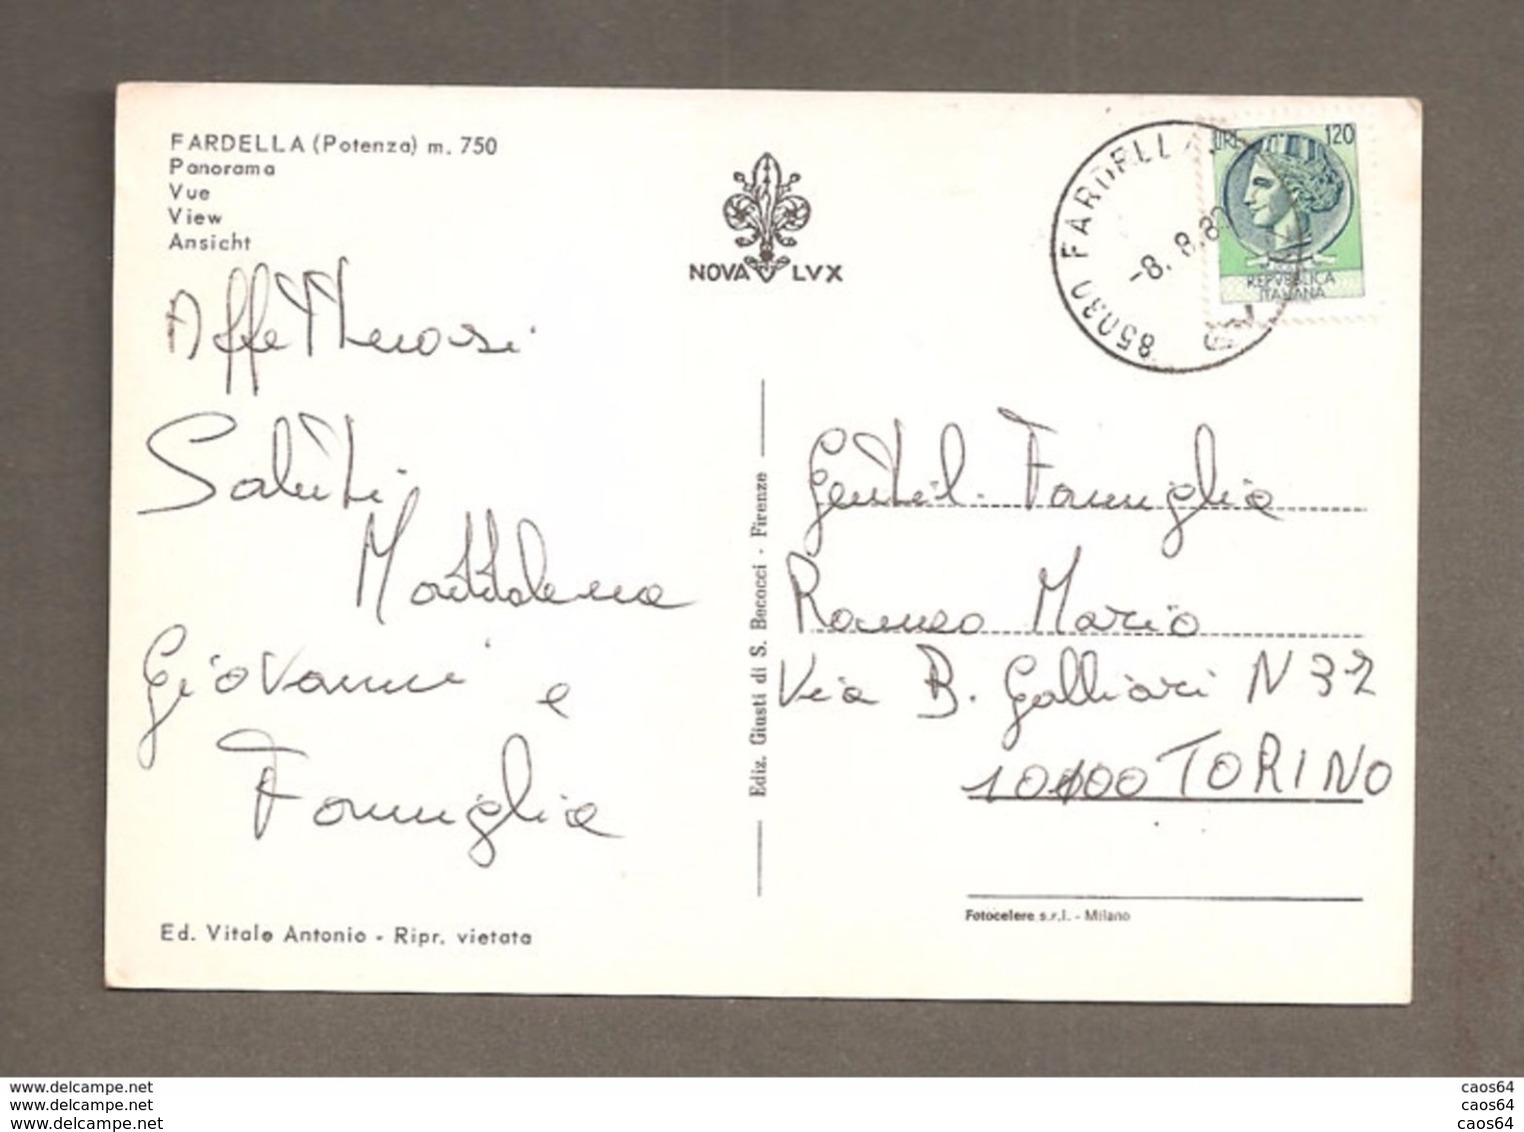 FARDELLA (Potenza) m. 750
Panorama
Vue
View
Ansicht
NOVA LVX
85030 FARDELLA
-8.8.80
LIRE 120
REPVBBLICA
ITALIANA
Affettuosi
Saluti
Maddalena
Giovanni e
Famiglia
Ediz. Giusti di S. Becocci - Firenze
Gentil. Famiglia
Romeo Mario
Via B. Galliari N 32
10100 TORINO
Ed. Vitale Antonio - Ripr. vietata
Fotocelere s.r.l. - Milano
www.delcampe.net
www.delcampe.net
www.delcampe.net
caos64
caos64
caos64